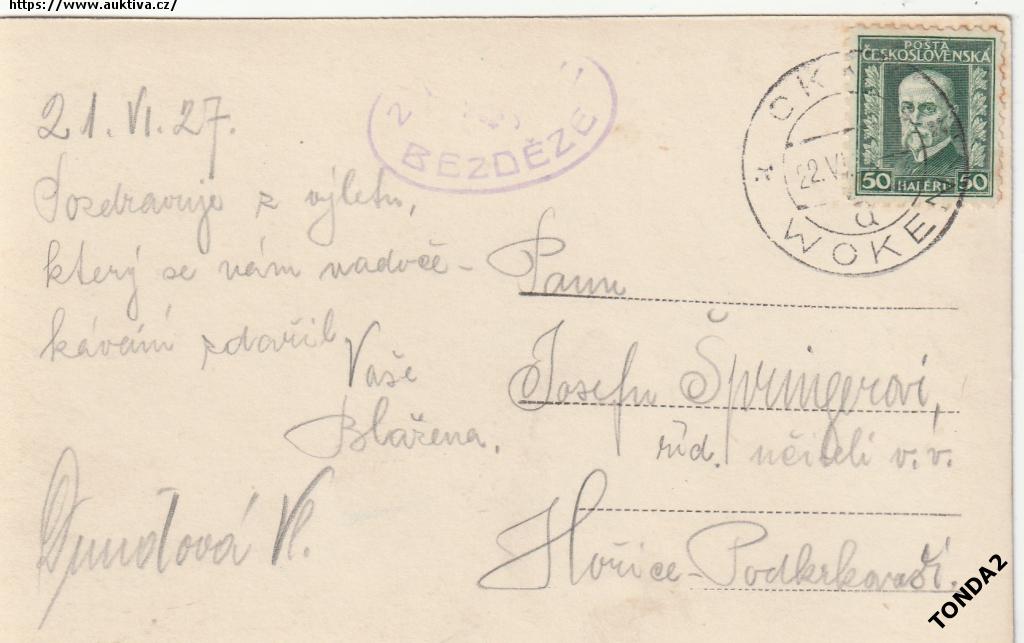 https://www.auktiva.cz/
21. VI. 27.
Pozdravuje z výletu,
který se nám nadoče-
kávání zdařil
Vaše
Blažena.
Dundtová Vl.
BEZDĚZE
POŠTA
ČESKOSLOVENSKÁ
50 HALÉŘŮ 50
22.VI
WOKEN
Panu
Josefu Špringerovi,
říd. učiteli v. v.
Hořice-Podkrkonoší.
TONDA2